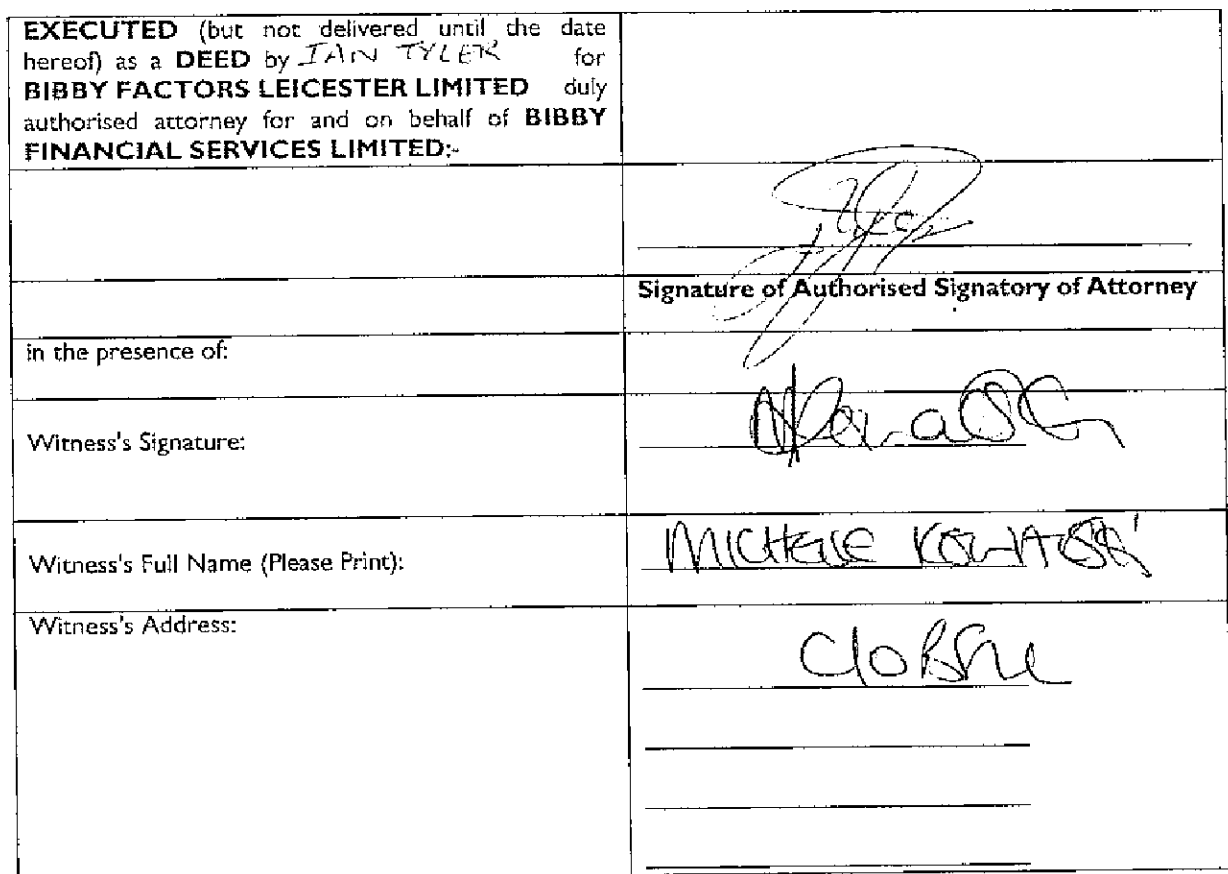 EXECUTED (but not delivered until the date
hereof) as a DEED by IAN TYLER for
BIBBY FACTORS LEICESTER LIMITED duly
authorised attorney for and on behalf of BIBBY
FINANCIAL SERVICES LIMITED:-
Signature of Authorised Signatory of Attorney
in the presence of:
Witness's Signature:
Witness's Full Name (Please Print):
MICHELLE
Witness's Address: